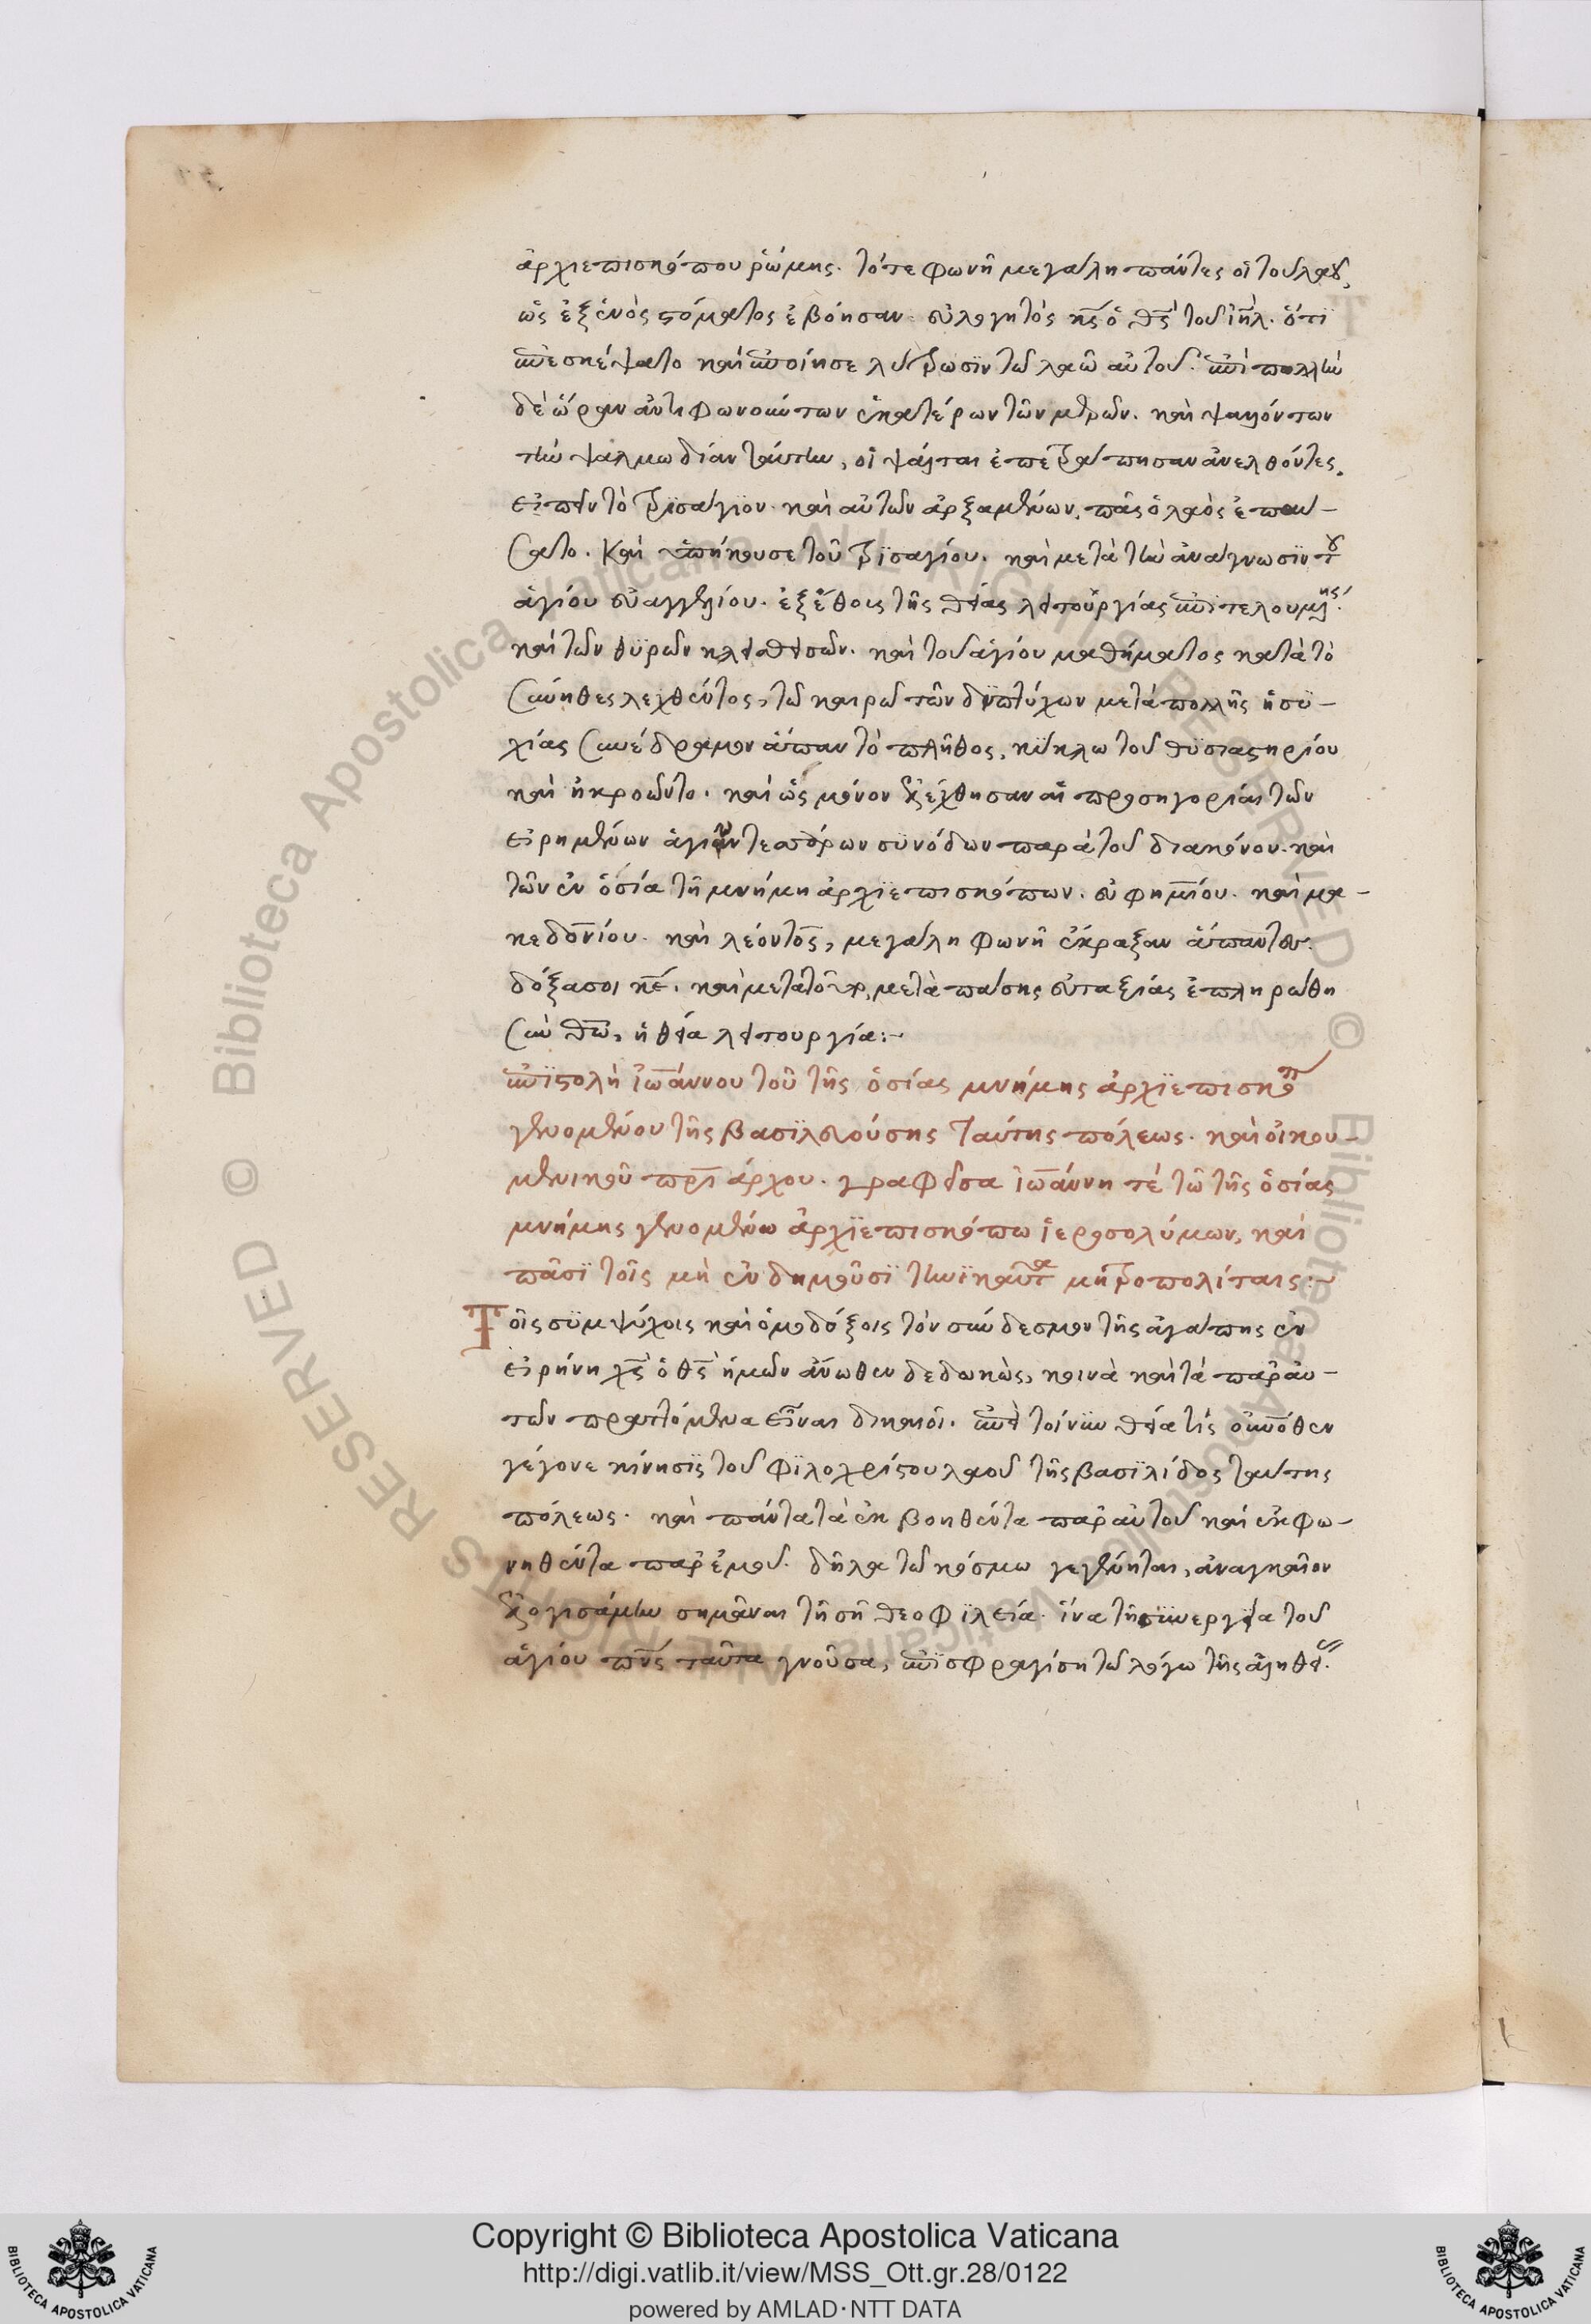 ἀρχιεπισκόπου ῥώμης. τότε φωνῆ μεγάλη πάντες οἱ τοῦ λαοῦ,
ὡς ἐξ ἑνὸς στόματος ἐβόησαν· εὐλογητὸς κ̅ς̅ ὁ θ̅ς̅ τοῦ ι̅η̅λ̅. ὅτι
ἐπεσκέψατο καὶ ἐποίησε λύτρωσϊν τῶ λαῶ αὐτοῦ. ἐπὶ πολλὴν
δὲ ὥραν ἀντιφωνούντων ἑκατέρων τῶν μερῶν. καὶ ψαλλόντων
τὴν ψαλμωδίαν ταύτην, οἱ ψάλται ἐπετράπησαν ἀνελθόντες,
εἰπεῖν τὸ τρϊσάγϊον· καὶ αὐτῶν ἀρξαμένων, πᾶς ὁ λαὸς ἐπαύ-
σατο. καὶ ὑπήκουσε τοῦ τρϊσαγίου. καὶ μετὰ τὴν ἀνάγνωσϊν τοῦ
ἁγίου εὐαγγελίου. ἐξ ἔθους τῆς θείας λειτουργίας ἐπιτελουμένης.
καὶ τῶν θϋρῶν κλεισθεισῶν. καὶ τοῦ ἁγίου μαθήματος κατὰ τὸ
σύνηθες λεχθέντος, τῶ καιρῶ τῶν διπτύχων μετὰ πολλῆς ἡσϋ-
χίας συνέδραμον ἅπαν τὸ πλῆθος, κύκλω τοῦ θϋσιαστηρίου
καὶ ἠκροῶντο. καὶ ὡς μόνον ἐλέχθησαν αἱ προσηγορίαι τῶν
εἰρημένων ἁγίων τεσσάρων συνόδων παρὰ τοῦ διακόνου. καὶ
τῶν ἐν ὁσία τῆ μνήμη ἀρχϊεπισκόπων. εὐφημίου. καὶ μα-
κεδονίου. καὶ λέοντος, μεγάλη φωνῆ ἔκραξαν ἅπαντες.
δόξα σοι κ̅ε̅. καὶ μετὰ τοῦτο, μετὰ πάσης εὐταξίας ἐπληρώθη
σὺν θ̅ω̅, ἡ θεία λειτουργία:-
ἐπϊστολὴ ἰωάννου τοῦ τῆς ὁσίας μνήμης ἀρχϊεπισκόπ
γενομένου τῆς βασϊλευούσης ταύτης πόλεως. καὶ οἰκου-
μενικοῦ πρ̅ι̅άρχου. γραφεῖσα ἰωάννη τέ τῶ τῆς ὁσίας
μνήμης γενομένω ἀρχϊεπισκόπω ἱεροσολύμων, καὶ
πᾶσϊ τοῖς μὴ ἐνδημοῦσϊ τηνϊκαῦτα μητροπολίταις:-
Τοῖς σϋμψύχοις καὶ ὁμοδόξοις τὸν σύνδεσμον τῆς ἀγάπης ἐν
εἰρήνη χ̅ς̅ ὁ θ̅ς̅ ἡμῶν ἄνωθεν δεδωκὼς, κοινὰ καὶ τὰ παρ᾽ αὐ-
τῶν πραττόμενα εἶναι δικαιοῖ. ἐπεὶ τοίνυν θεία τίς οἰκόθεν
γέγονε κίνησϊς τοῦ φϊλοχρίστου λαοῦ τῆς βασϊλίδος ταύτης
πόλεως. καὶ πάντα τὰ ἐκβοηθέντα παρ᾽ αὐτοῦ καὶ ἐκφω-
νηθέντα παρ᾽ ἐμοῦ. δῆλα τῶ κόσμω γεγένηται, ἀναγκαῖον
ἐλογισάμην σημᾶναι τῆ σῆ θεοφϊλεία. ἵνα τῆ συνεργεία τοῦ
ἁγίου π̅ν̅ς̅ ταῦτα γνοῦσα, ἐπϊσφραγίση τῶ λόγω τῆς ἀληθείας.
Copyright © Biblioteca Apostolica Vaticana
http://digi.vatlib.it/view/MSS_Ott.gr.28/0122
powered by AMLAD·NTT DATA